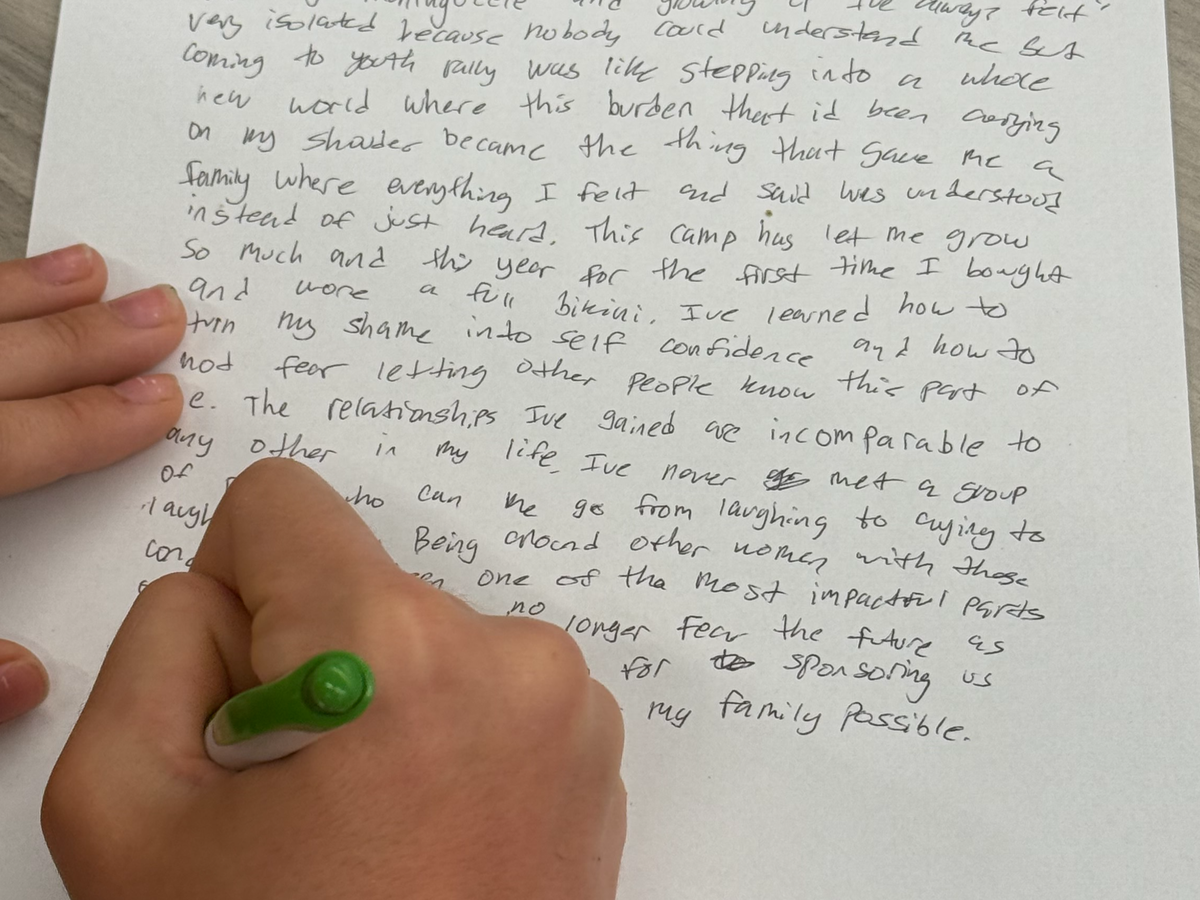 growing I've always felt
very isolated because nobody could understand me but
coming to youth rally was like stepping into a whole
new world where this burden that id been carrying
on my shoulder became the thing that gave me a
family where everything I felt and said was understood
instead of just heard. This camp has let me grow
So much and this year for the first time I bought
and wore a full bikini. Ive learned how to
turn my shame into self confidence and how to
not fear letting other people know this part of
e. The relationships Ive gained are incomparable to
any other in my life. Ive never met a group
of who can me go from laughing to crying to
laugh Being around other women with these
one of the most impactful parts
no longer fear the future as
for sponsoring us
my family possible.